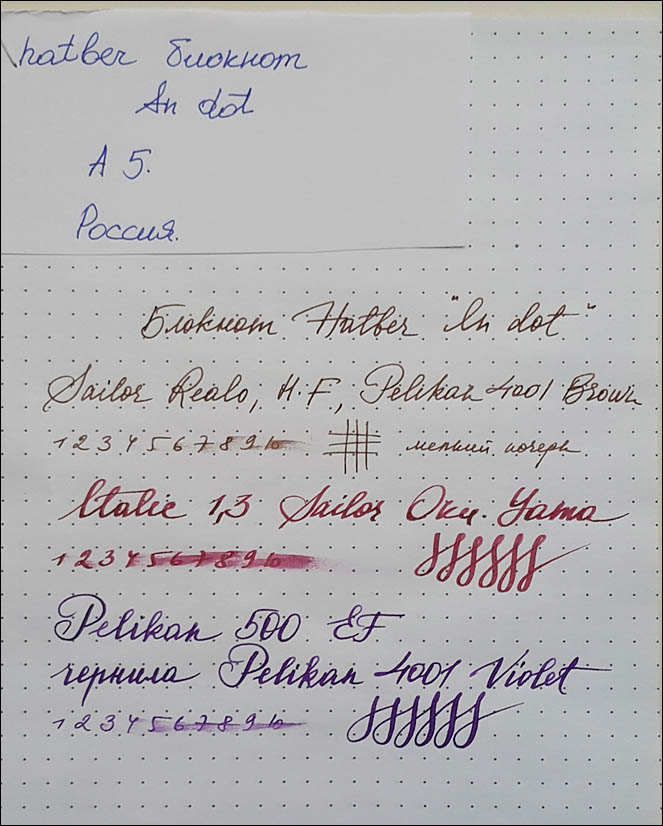 hatber блокнот
In dot
А 5.
Россия.
Блокнот Hatber "In dot"
Sailor Realo, H-F, Pelikan 4001 Brown
1 2 3 4 5 6 7 8 9 10 мелкий почерк.
Italic 1,3 Sailor Oku-Yama
1 2 3 4 5 6 7 8 9 10
Pelikan 500 EF
чернила Pelikan 4001 Violet
1 2 3 4 5 6 7 8 9 10